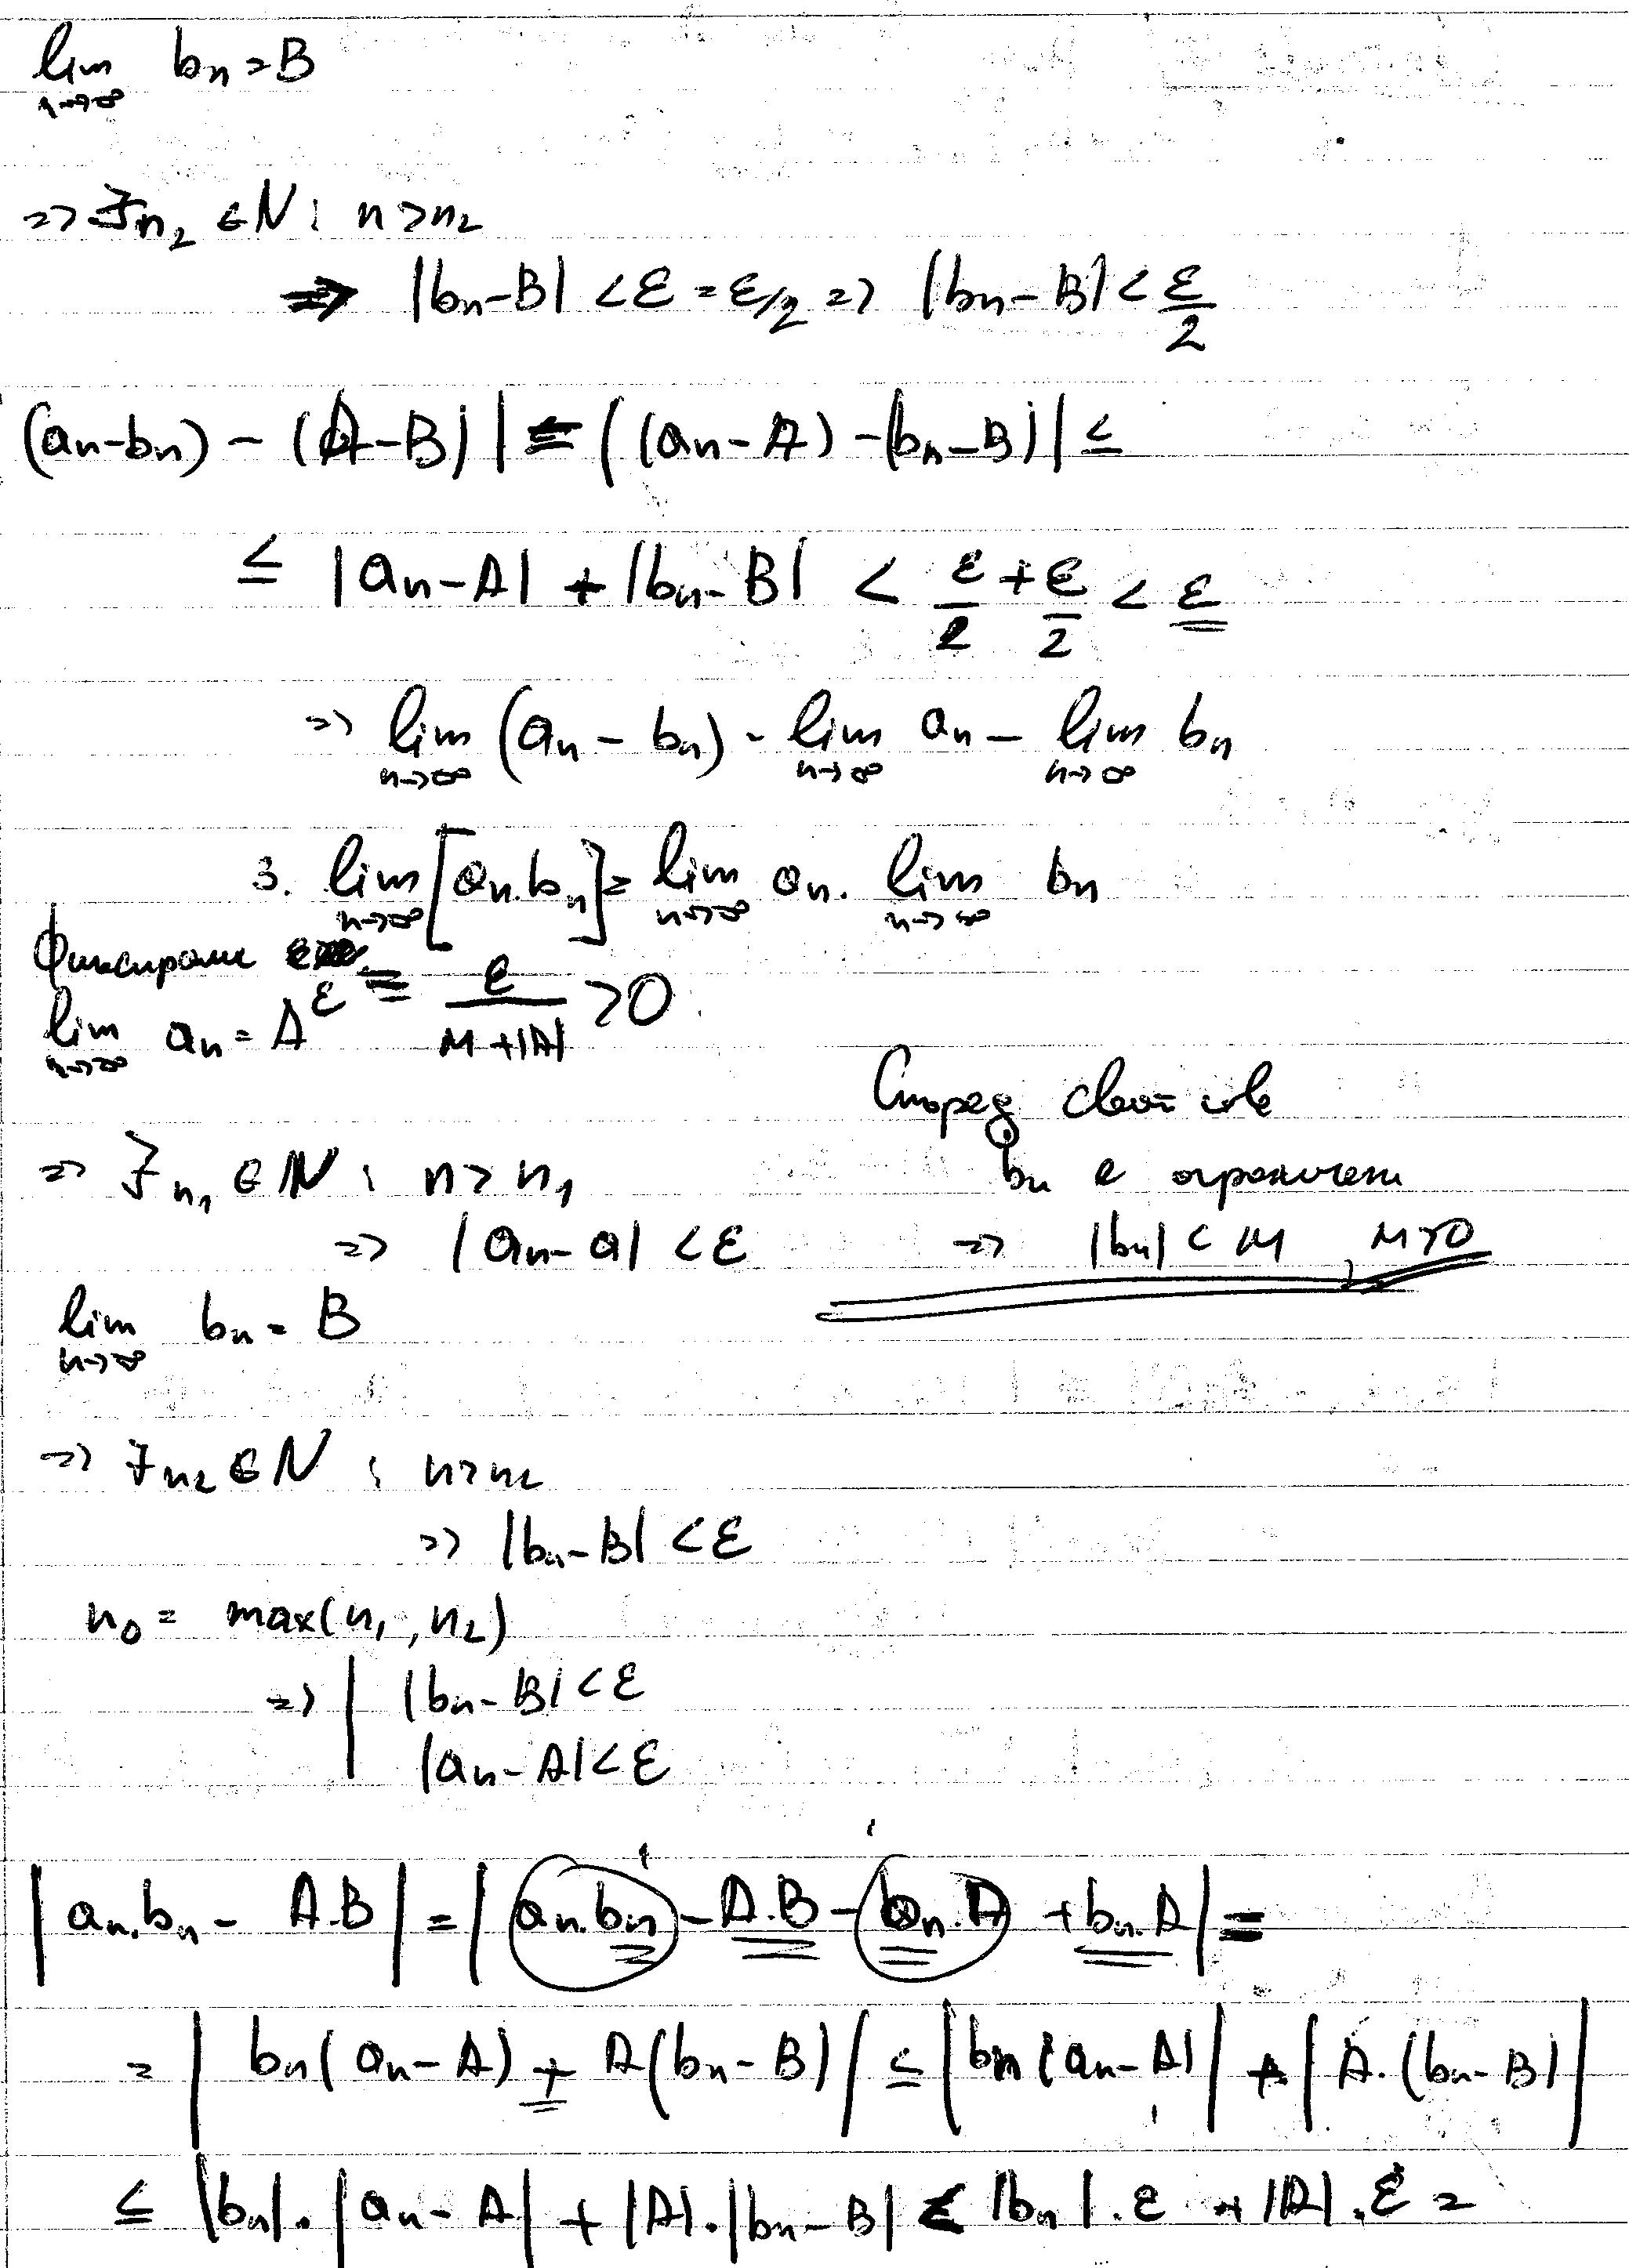 lim bn = B
n→∞
=> ∃n₂ ∈ N : n > n₂
=> |bn - B| < ε = ε/2 => |bn - B| < ε/2
(an - bn) - (A - B)| = |(an - A) - (bn - B)| ≤
≤ |an - A| + |bn - B| < ε/2 + ε/2 < ε
=> lim (an - bn) - lim an - lim bn
n→∞ n→∞ n→∞
3. lim [an.bn] = lim an. lim bn
n→∞ n→∞ n→∞
Фиксираме ε = ε/(M + |A|) > 0
lim an = A
n→∞
Според свойство
=> ∃n₁ ∈ N : n > n₁
bn е ограничен
=> |an - a| < ε
=> |bn| < M, M > 0
lim bn = B
n→∞
=> ∃n₂ ∈ N : n > n₂
=> |bn - B| < ε
n₀ = max(n₁, n₂)
=> | |bn - B| < ε
|an - A| < ε
|an.bn - A.B| = |an.bn - A.B - bn.A + bn.A| =
= |bn(an - A) + A(bn - B)| ≤ |bn(an - A)| + |A.(bn - B)|
≤ |bn|.|an - A| + |A|.|bn - B| < |bn|.ε + |A|.ε =